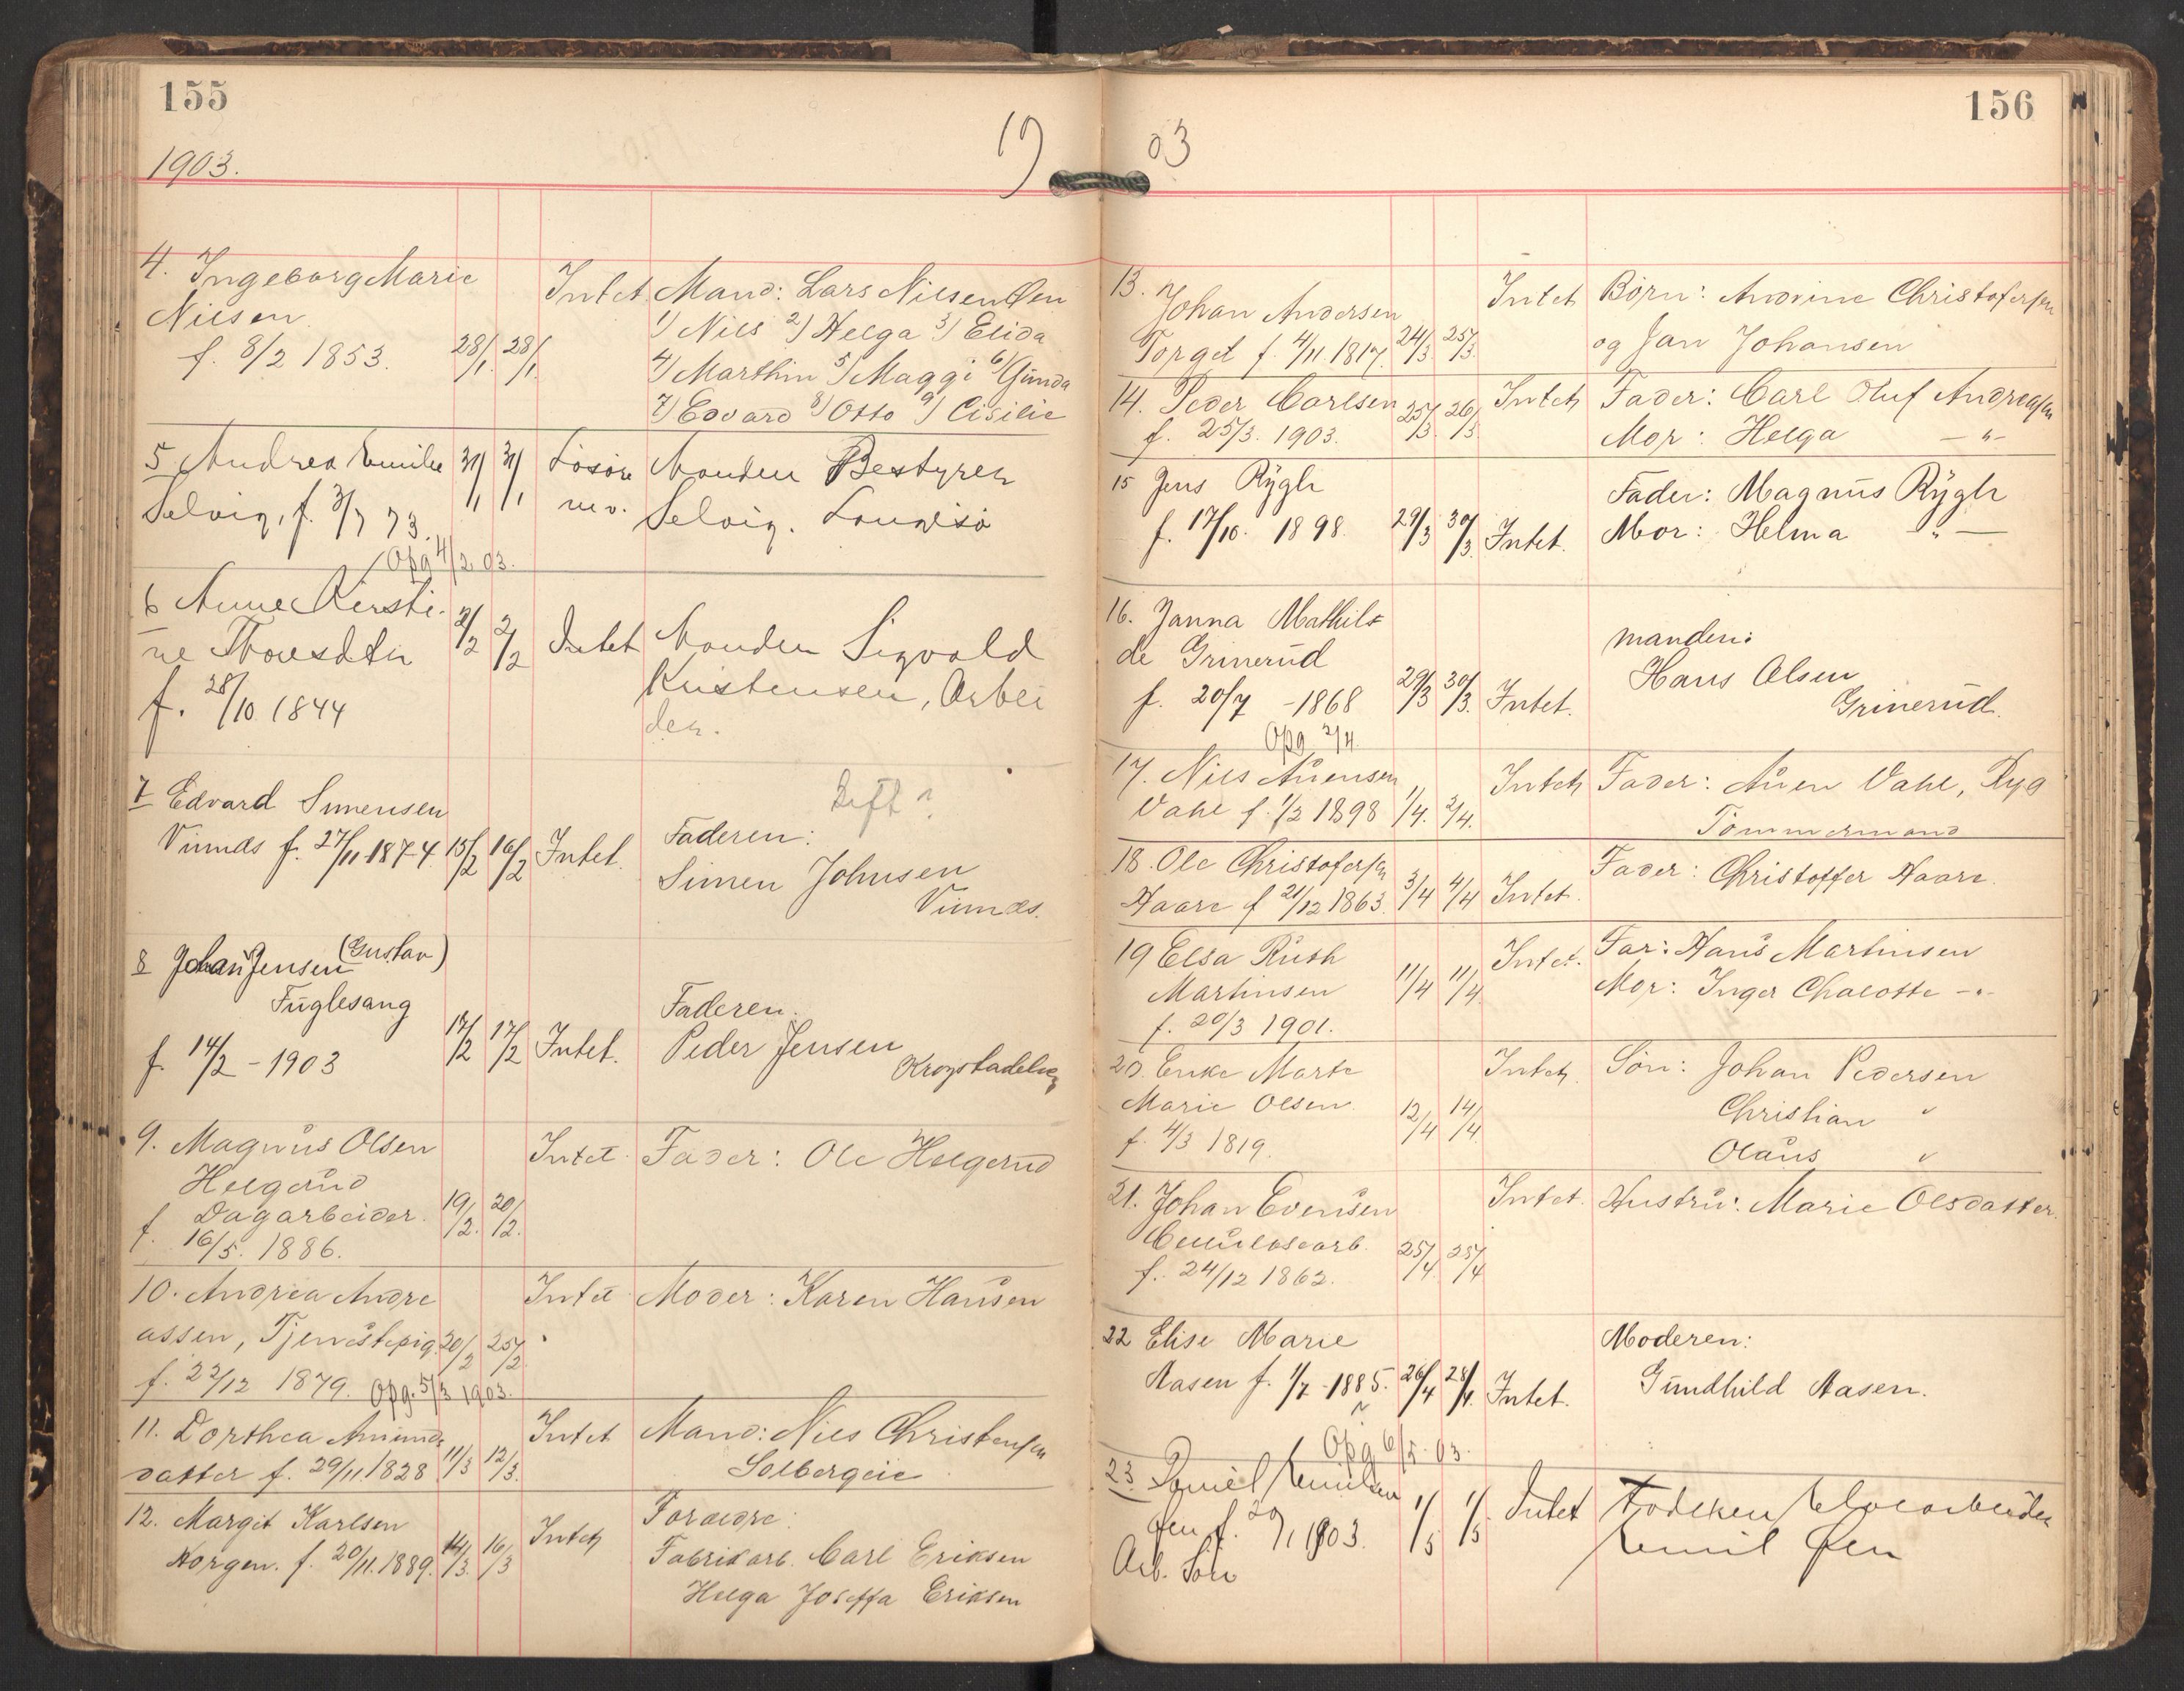 155
1903.
19
4. Ingeborg Marie
Nilsen
f. 8/2 1853. 28/1. 28/1. Intet
Mand: Lars Nilsen Øen
1) Nils 2) Helga 3) Elida
4) Marthin 5) Maggi 6) Gunda
7) Edvard 8) Otto 9) Cisilie
5 Andrea Emilie 31/1 31/1 Løsøre Manden Bestyrer
Selvig, f. 3/7 73. m.v. Selvig.
Opg 4/2 03.
6 Anne Kersti-
ne 2/2 2/2 Intet Manden Sigvald
f. 28/10 1844 Kristensen, Arbei
der.
7 Edvard Simensen
Skift?
Vinnæs f. 27/11-1874. 15/2 16/2 Intet. Faderen:
Simen Johnsen
Vinnæs.
8 Johan Jensen (Gustav)
Fuglesang
Faderen.
f. 14/2 - 1903 17/2 17/2 Intet. Peder Jensen
Krogstadelven
9. Magnus Olsen Intet. Fader: Ole Helgerud
Helgerud
Dagarbeider. 19/2. 20/2.
f. 16/5. 1886.
10. Andrea Andre Intet Moder: Karen Hansen
assen, Tjenestepig. 20/2 25/2
f. 22/12 1879. Opg. 5/3 1903.
11. Dorthea Amunds Intet Mand: Nils Christensen
datter f. 29/11. 1828 11/3 12/3. Solbergeie
12. Margit Karlsen Intet Foræedre:
Horgen. f. 20/11. 1889. 14/3. 16/3 Fabrikarb. Carl Eriksen
Helga Joseffa Eriksen
156
03
13. Johan Andersen Intet Børn: Andrine Christofersen
Torget f. 4/11. 1817. 24/3. 25/3. og Jan Johansen
14. Peder Carlsen 25/3. 26/3 Intet Fader: Carl Oluf Andreassen
f. 25/3. 1903. Mor: Helga -"-
15 Jens Rygh Fader: Magnus Rygh
f. 17/10. 1898. 29/3 30/3 Intet. Mor: Helma -"-
16. Janna Mathil-
de Grinerud
manden:
Hans Olsen
f. 20/7 - 1868 29/3 30/3. Intet. Grinerud.
Opg 2/4.
17. Nils Auensen Intet Fader: Auen Dahl, Ryg
Dahl f. 1/2 1898 1/4. 2/4. Tømmermand
18. Ole Christofersen Fader: Christoffer Haare.
Haare f 21/12 1863. 3/4 4/4 Intet.
19 Elsa Ruth Intet. Far: Hans Martinsen
Martinsen 11/4 11/4 Mor: Inger Chalotte -"-
f. 20/3 1901.
20. Enke Marte Intet. Søn: Johan Pedersen
Marie Olsen. 12/4 14/4. Christian "
f. 4/3 1819. Olaus "
21. Johan Evensen Intet. Hustru: Marie Olsdatter.
Cellulosearb. 25/4. 25/4
f. 24/12 1862.
22 Elise Marie Moderen:
Aasen f. 1/7-1885. 26/4 28/4. Intet. Gundhild Aasen.
Opg 6/5. 03.
23 Emilsen 1/5 1/5 Intet
Øen f. 29/1 1903. Emil Øen
Arb. Søn